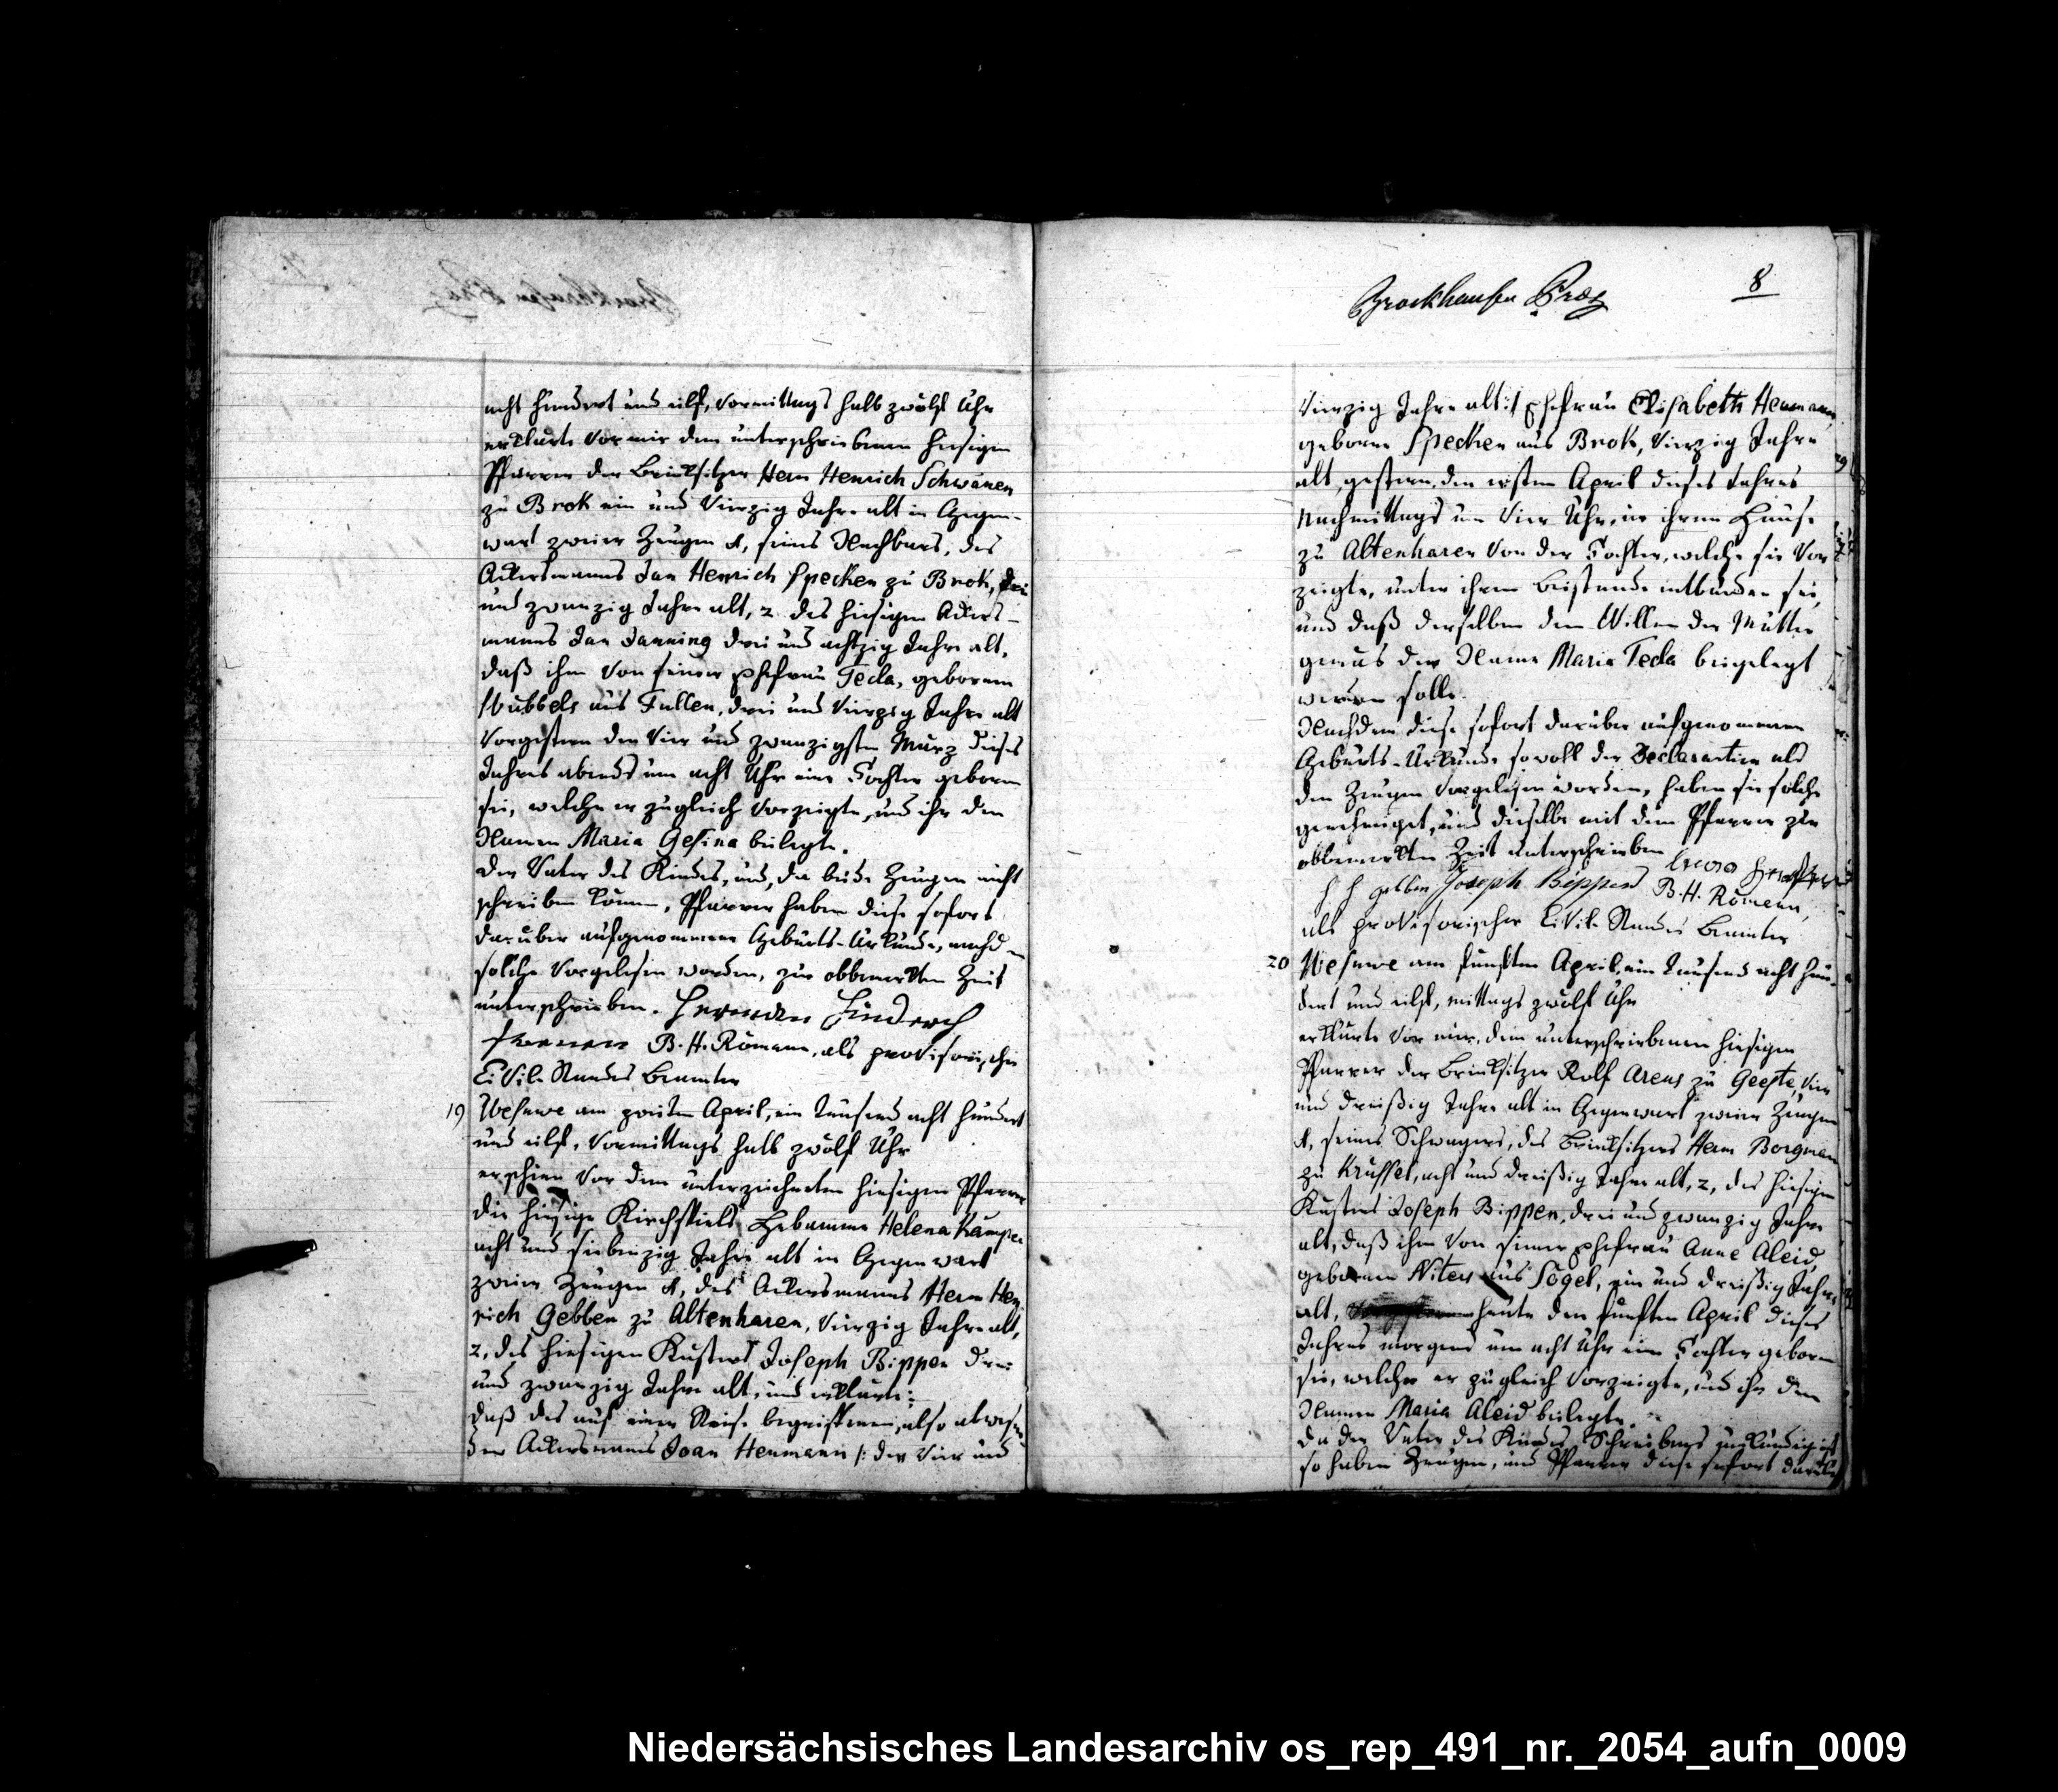 acht hundert und eilf, Vormittags halb zwölf Uhr
erklärte vor mir dem unterschriebenen hiesigen
Pfarrer der Brinksitzer Herm Henrich Schwänen
zu Brok ein und Vierzig Jahre alt in Gegen-
wart zweier Zeugen 1, seines Nachbars, des
Ackersmanns Jan Henrich Specken zu Brok, drei
und zwanzig Jahre alt, 2 des hiesigen Ackers-
manns Jan Janning drei und achtzig Jahre alt,
daß ihm von seiner Ehefrau Tecla, geborenen
Wubbels aus Fullen, drei und Vierzig Jahre alt
Vorgestern den Vier und zwanzigsten März dieses
Jahres abends um acht Uhr eine Tochter geboren
sei, welche er zugleich vorzeigte, und ihr den
Namen Maria Gesina beilegte.
Der Vater des Kindes, und, da beide Zeugen nicht
schreiben können, Pfarrer haben diese sofort
darüber aufgenommene Geburts-Urkunde, nachdem
solche vorgelesen worden, zur obbemerkten Zeit
unterschrieben. Herman Hinderch
B. H. Römann, als provisorischer
Civil-Standes Beamter
19 Wesuwe am zweiten April, ein Tausend acht hundert
und eilf, Vormittags halb zwölf Uhr
erschien vor dem unterzeichneten hiesigen Pfarrer
die hiesige Kirchspiels Hebamme Helena Kämper
acht und siebenzig Jahre alt in Gegenwart
zweier Zeugen 1, des Ackersmanns Herm Hen
rich Gebben zu Altenharen, Vierzig Jahre alt,
2, des hiesigen Küsters Joseph Bippen drei
und zwanzig Jahre alt, und erklärte:
daß des auf einer Reise begriffenen, also abwesen
den Ackersmanns Joan Henmann /: der Vier und
Brockhausen Præs
8
Vierzig Jahre alt :/ Ehefrau Elisabeth Henmann,
geborene Specken aus Brok, Vierzig Jahre
alt, gestern, den ersten April dieses Jahres
Nachmittags um Vier Uhr, in ihrem Hause
zu Altenharen von der Tochter, welche sie vor
zeigte, unter ihrem Beistande entbunden sei,
und daß derselben dem Willen der Mutter
gemäs der Name Maria Tecla beigelegt
werden solle.
Nachdem diese sofort darüber aufgenommene
Geburts-Urkunde sowohl der Declarantin als
den Zeugen vorgelesen worden, haben sie solche
genehmiget, und dieselbe mit dem Pfarrer zur
obbemerkten Zeit unterschrieben
H H gebben Joseph Bippen B. H. Römann,
als provisorischer Civil-Standes Beamter
20 Wesuwe am fünften April, ein Tausend acht hun-
dert und eilf, mittags zwölf Uhr
erklärte vor mir, dem unterschriebenen hiesigen
Pfarrer der Brinksitzer Rolf Arens zu Geeste, Vier
und dreißig Jahre alt in Gegenwart zweier Zeugen
1, seines Schwagers, des Brinksitzers Herm Borgmann
zu Krüssel, acht und dreißig Jahre alt, 2, des hiesigen
Küsters Joseph Bippen, drei und zwanzig Jahre
alt, daß ihm von seiner Ehefrau Anne Aleid,
geborenen Niters aus Sögel, ein und dreißig Jahre
alt, heute den fünften April dieses
Jahres morgens um acht Uhr eine Tochter geboren
sei, welche er zugleich vorzeigte, und ihr den
Namen Maria Aleid beilegte.
Da der Vater des Kindes Schreibens unkundig ist
so haben Zeugen, und Pfarrer diese sofort darüber
Niedersächsisches Landesarchiv os_rep_491_nr._2054_aufn_0009